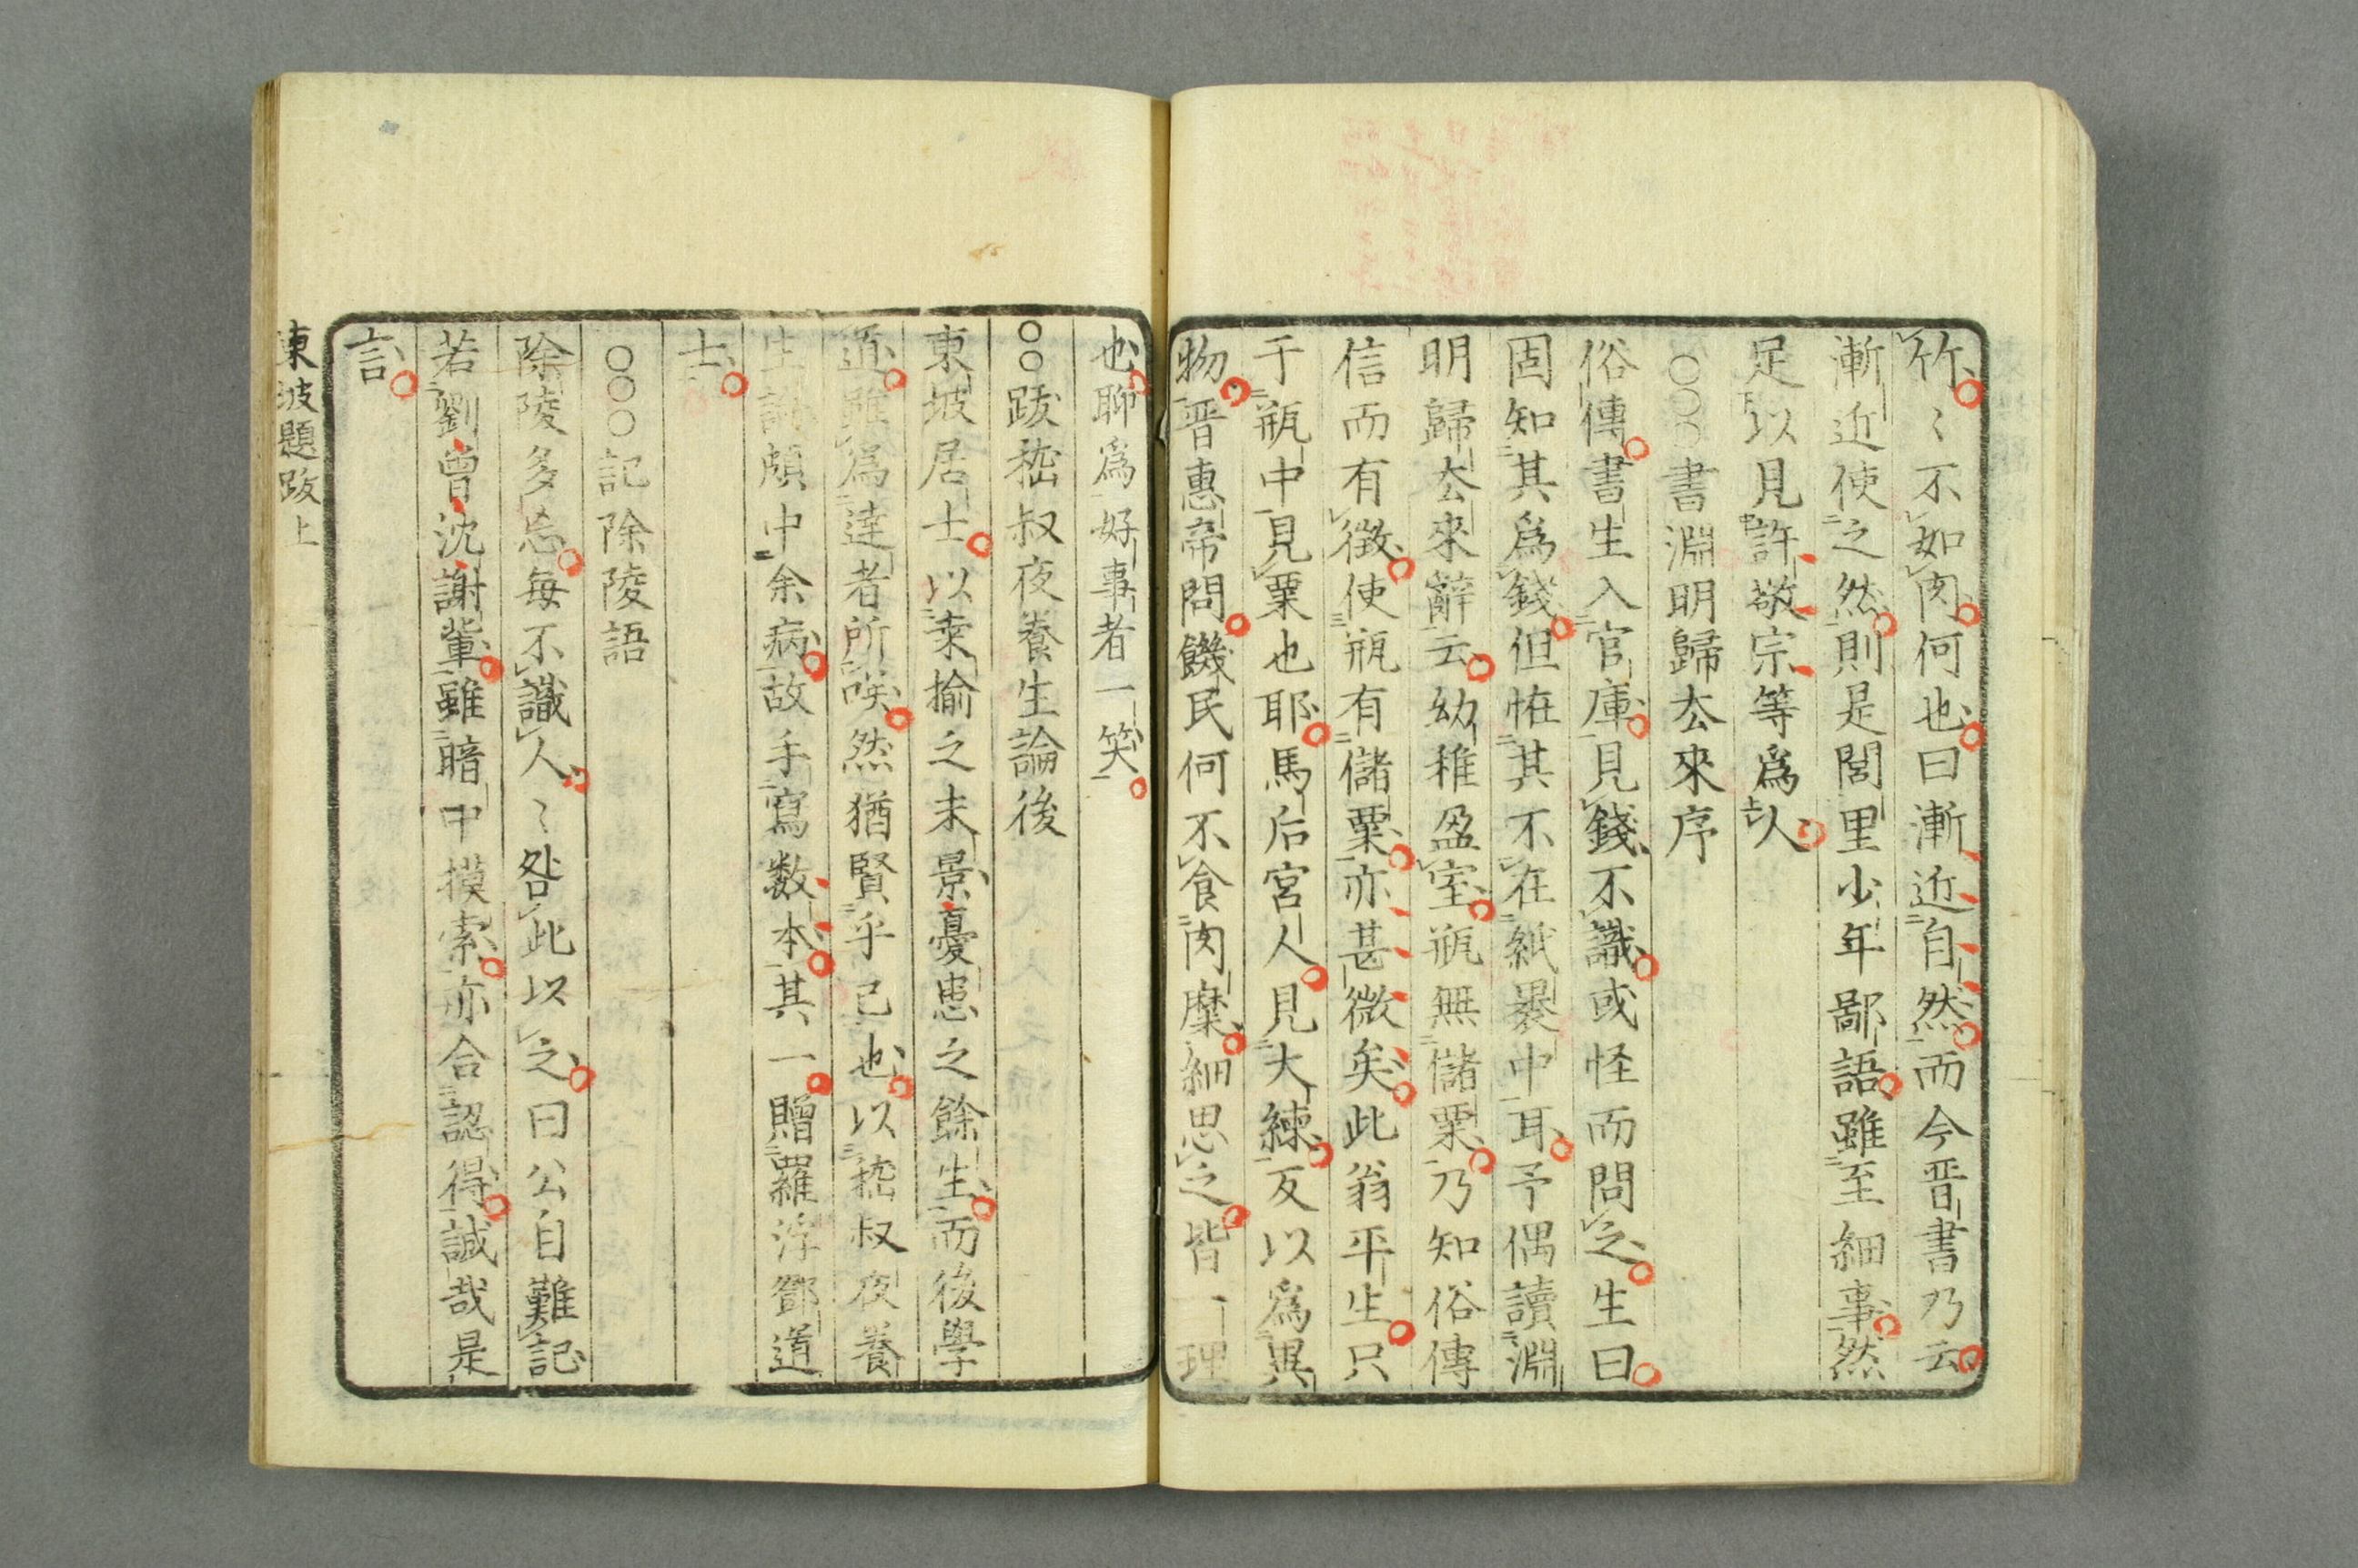 竹〻不如肉何也曰漸近自然而今晋書乃云
漸近使之然則是閭里少年鄙語雖至細事然
足以見許敬宗等爲人
○○○書淵明歸去來序
俗傳書生入官庫見錢不識或怪而問之生曰
固知其爲錢但恠其不在紙褁中耳予偶讀淵
明歸去來辭云幼稚盈室瓶無儲粟乃知俗傳
信而有徴使瓶有儲粟亦甚微矣此翁平生只
于瓶中見粟也耶馬后宮人見大練反以爲異
物晋惠帝問饑民何不食肉糜細思之皆一理
也聊爲好事者一笑
○○跋嵇叔夜養生論後
東坡居士以桒揄之末景憂患之餘生而後學
道雖爲達者所唉然猶賢乎已也以嵇叔夜養
生論頗中余病故手寫数本其一贈羅浮鄧道
士
○○○記除陵語
除陵多忘每不識人〻咎此以之曰公自難記
若劉曾沈謝輩雖暗中摸索亦合認得誠哉是
言
東坡題跋上